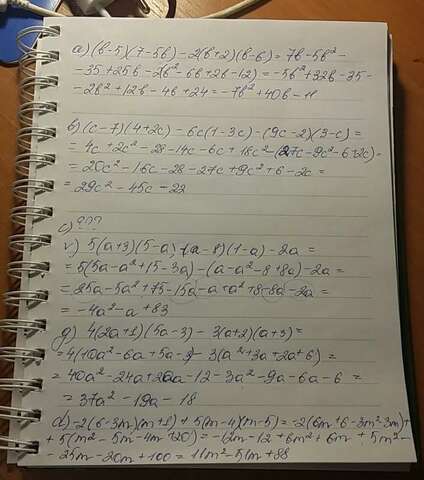 а) (b-5)(7-5b) -2(b+2)(b-6) = 7b-5b²-
-35+25b -2(b²-6b+2b-12) = -5b²+32b-35-
-2b²+12b-4b+24 = -7b²+40b-11
b) (c-7)(4+2c) -6c(1-3c) -(9c-2)(3-c) =
= 4c+2c²-28-14c-6c+18c²-(27c-9c²-6+2c)=
= 20c²-16c-28-27c+9c²+6-2c=
= 29c²-45c-22
c) ???
v) 5(a+3)(5-a)-(a-8)(1-a)-2a =
= 5(5a-a²+15-3a)-(a-a²-8+8a)-2a =
= 25a-5a²+75-15a-a+a²+8-8a-2a =
= -4a²-a+83
g) 4(2a+1)(5a-3) -3(a+2)(a+3) =
= 4(10a²-6a+5a-3)-3(a²+3a+2a+6) =
= 40a²-24a+20a-12-3a²-9a-6a-6 =
= 37a²-19a-18
d) -2(6-3m)(m+1)+5(m-4)(m-5) = -2(6m+6-3m²-3m)+
+5(m²-5m-4m+20) = -12m-12+6m²+6m+5m²-
-25m-20m+100 = 11m²-51m+88